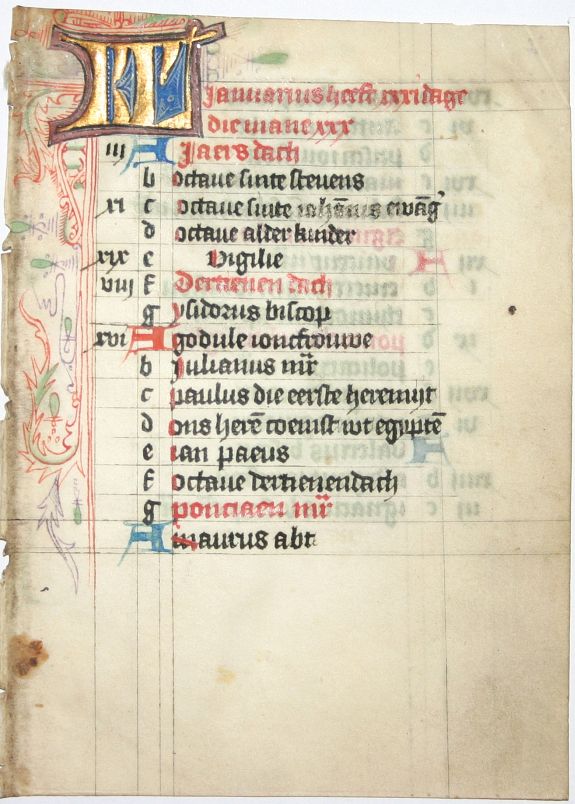 KL Januarius heeft xxxi dage
die mane xxx
iii A Jaersdach
b octave sinte stevens
xi c octave sinte iohannis ewāg
d octave alder kinder
xix e Vigilie
viii f Dertienen dach
g ysidorus biscop
xvi A godule ioncfrouwe
b julianus mr̄
c paulus die eerste heremijt
d ons herē coemst wt egyptē
e ian paeus
f octave dertienendach
g ponciaen mr̄
A maurus abt